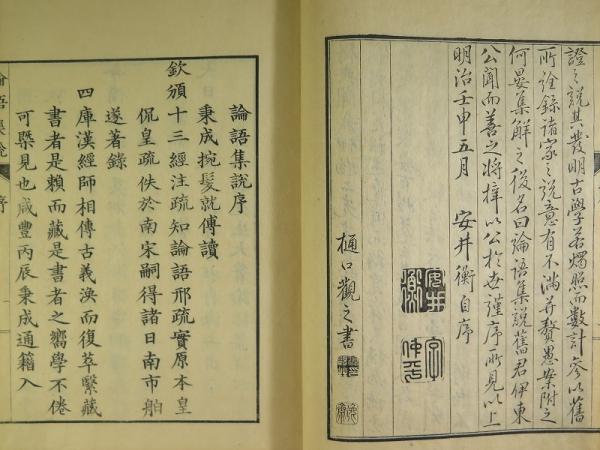 證之說其發明古學若燭照而數計參以舊
所詮錄諸家之說意有不滿并贅愚案附之
何晏集解之後名曰論語集說舊君伊東
公聞而善之將梓以公於世謹序所見以上
明治壬申五月 安井衡自序
安井
衡
字
仲平
樋口觀之書
論語集說序
秉成捥髮就傅讀
欽頒十三經注疏知論語邢疏實原本皇
侃皇疏佚於南宋嗣得諸日南市舶
遂著錄
四庫漢經師相傳古義渙而復萃繄藏
書者是賴而藏是書者之嚮學不倦
可槩見也咸豐丙辰秉成通籍入
論語集說
序